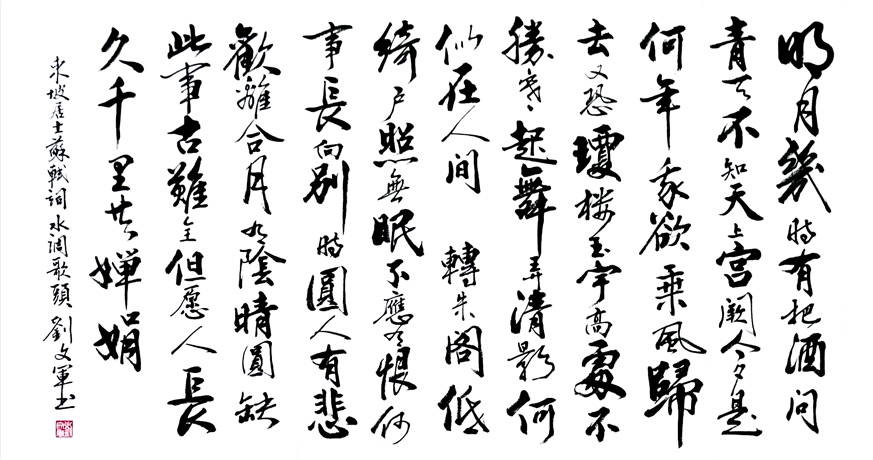 明月幾時有把酒问
青天不知天上宮阙今夕是
何年我欲乘風歸
去又恐瓊楼玉宇高處不
勝寒起舞弄清影何
似在人间 轉朱阁低
綺户照無眠不應有恨何
事長向别時圓人有悲
歡離合月有陰晴圓缺
此事古難全但愿人長
久千里共嬋娟
東坡居士蘇軾詞水調歌頭劉文軍书